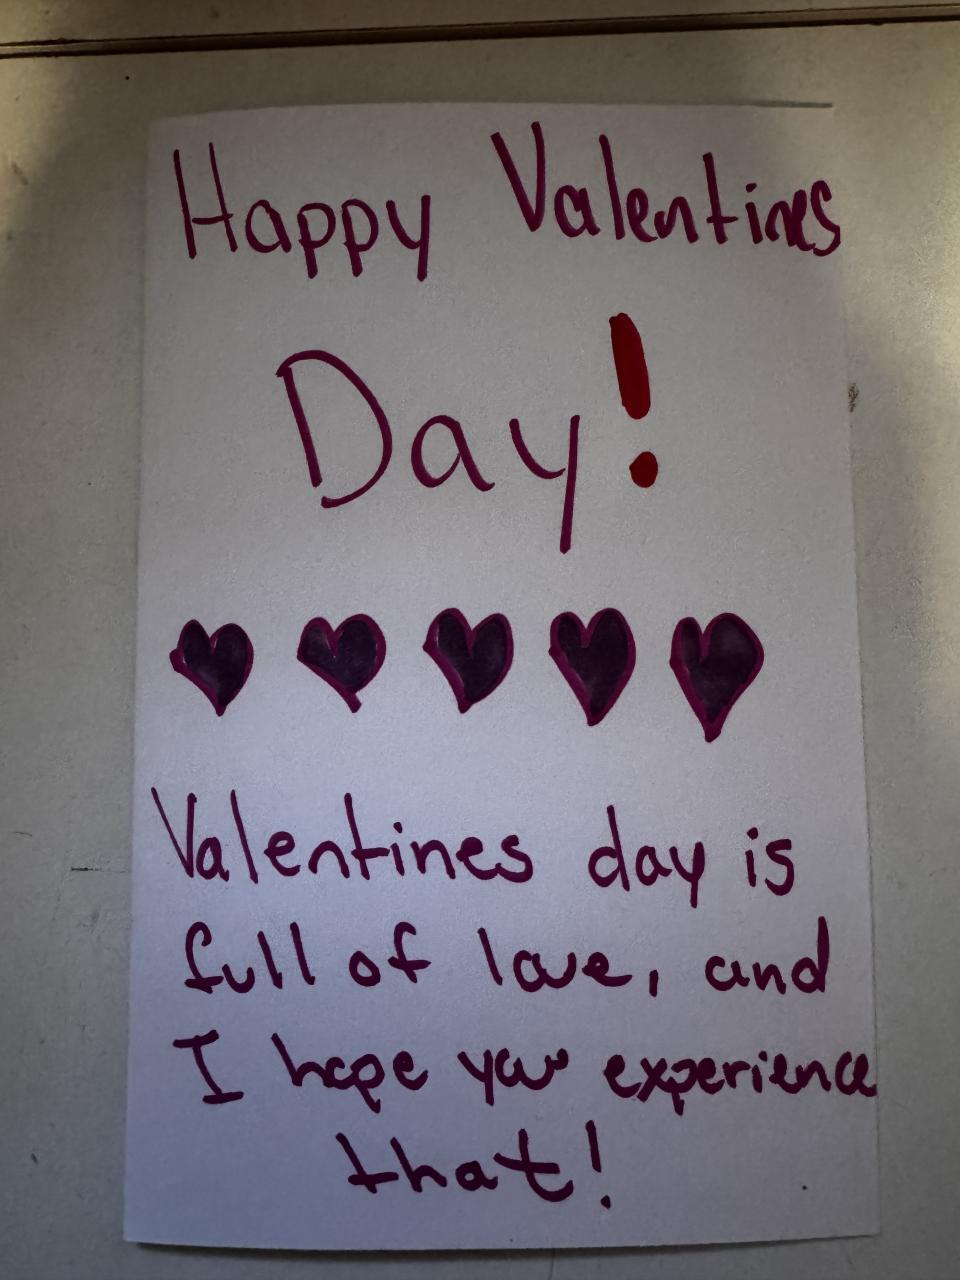 Happy Valentines
Day!
Valentines day is
full of love, and
I hope you experience
that!